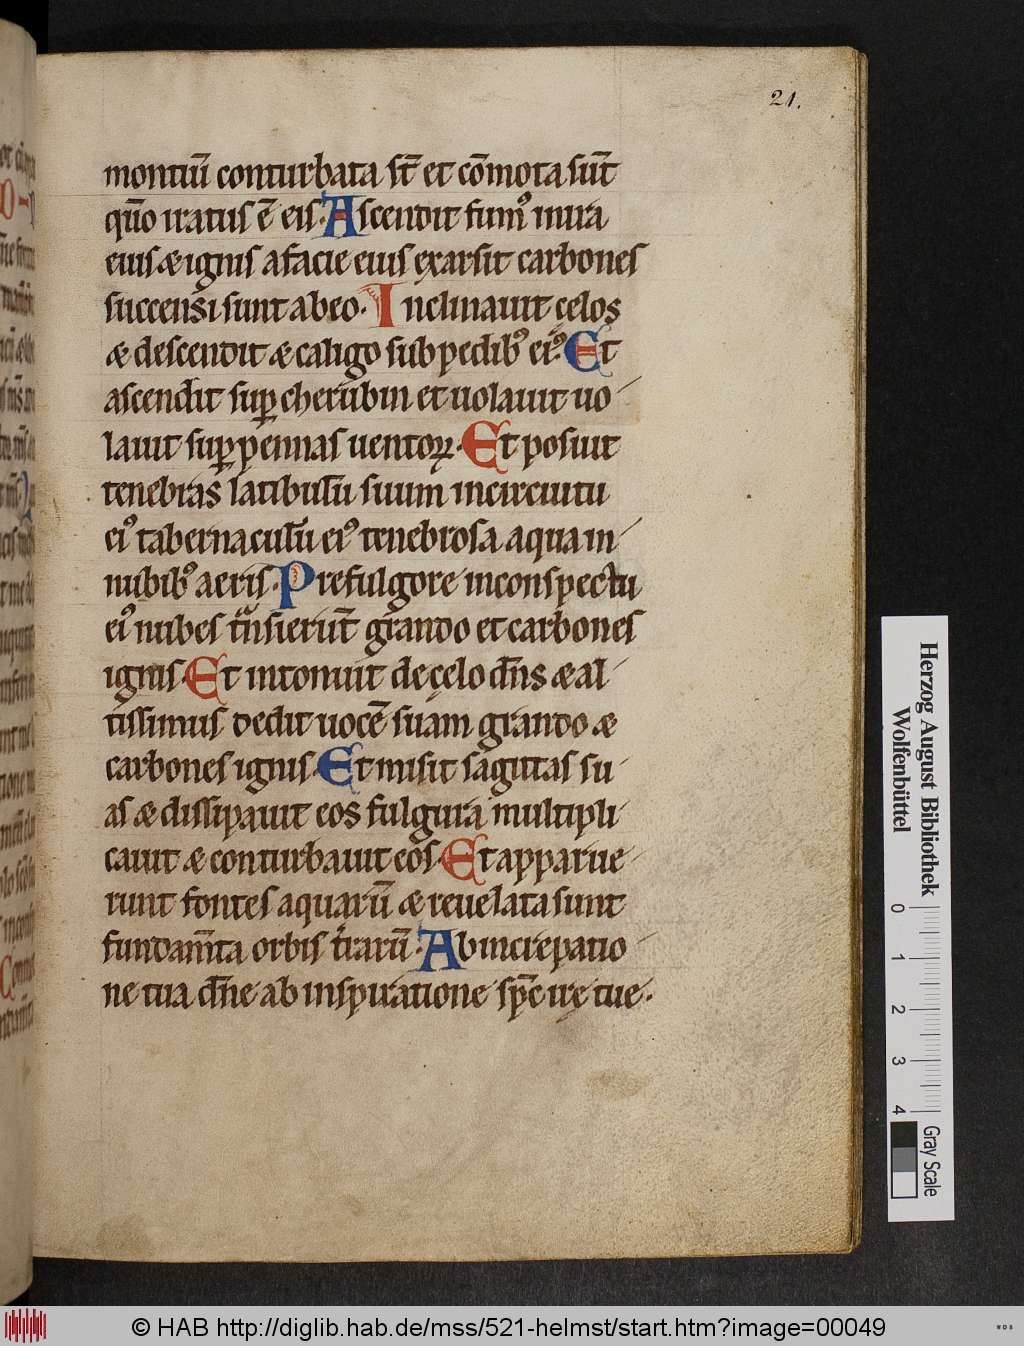 21.
montiū conturbata st̄ et cōmota sūt
qm̄o iratus ē eis. Ascendit fumꝰ in ira
eius & ignis a facie eius exarsit carbones
succensi sunt ab eo. Inclinauit cęlos
& descendit & caligo sub pedibꝰ eiꝰ. Et
ascendit suꝑ cherubin et uolauit uo-
lauit suꝑ pennas uentoꝝ. Et posuit
tenebras latibulū suum in circuitu
eiꝰ tabernaculū eiꝰ tenebrosa aqua in
nubibꝰ aeris. Pre fulgore in conspectu
eiꝰ nubes tᵃnsierūt grando et carbones
ignis. Et intonuit de cęlo dn̄s & al-
tissimus dedit uocē suam grando &
carbones ignis. Et misit sagittas su-
as & dissipauit eos fulgura multipli-
cauit & conturbauit eos. Et apparue-
runt fontes aquarū & reuelata sunt
fundam̄ta orbis t̄rarū. Ab increpatio-
ne tua dn̄e ab inspiratione sp̄c irę tuę.
Herzog August Bibliothek
Wolfenbüttel
0 1 2 3 4
Gray Scale
© HAB http://diglib.hab.de/mss/521-helmst/start.htm?image=00049